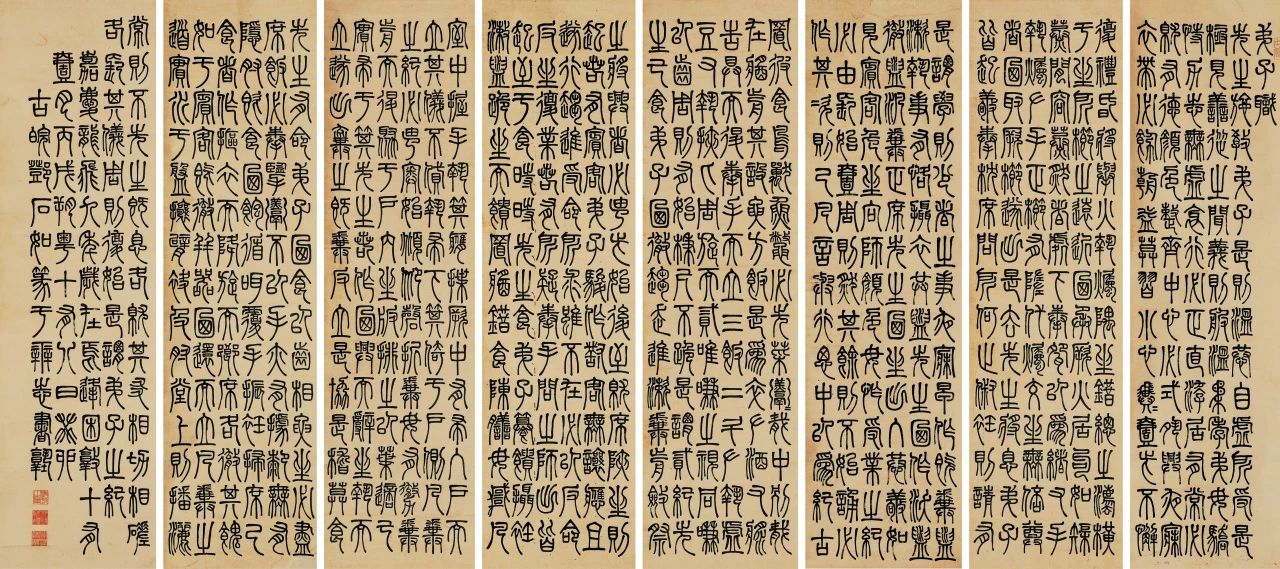 弟子職
先生施教弟子是則溫恭自虛所受是
極見善從之聞義則服溫柔孝弟毋驕
恃力志無虛邪行必正直游居有常必
就有德顏色整齊中心必式夙興夜寐
衣帶必飾朝益暮習小心翼翼壹此不懈
復禮昏將舉火執燭隅坐錯總之法橫
于坐所櫛之遠近乃承厥火居句如矩
蒸間容蒸然者處下奉椀以為緒右手
執燭左手正櫛有墮代燭交坐毋倍尊
者乃取厥櫛遂出是去先生將息弟子
皆起敬奉枕席問所何趾俶衽則請有
是謂學則少者之事夜寐早作既拚盥
漱執事有恪攝衣共盥先生乃作沃盥
徹盥汎拚正席先生乃坐出入恭敬如
見賓客危坐向師顏色毋怍受業之紀
必由長始壹周則然其餘則不始誦必
作其次則已凡言與行思中以為紀古
置彼食鳥獸魚鱉必先菜羹羹胾中別胾
在醬前其設要方飯是為卒左酒右醬
告具而退奉手而立三飯二斗左執虛
豆右執挾匕周還而貳唯嗛之視同嗛
以齒周則有始柄尺不跪是謂貳紀先
生已食弟子乃徹趨走進漱拚前斂祭
之將興者必由此始後至就席陜坐則
起若有賓客弟子駿作對客無讓應且
遂行趨進受命所求雖不在必以反命
反坐復業若有所疑奉手問之師出皆
起至于食時先生將食弟子饌饋攝衽
盥漱跪坐而饋置醬錯食陳膳毋悖凡
室中握手執箕膺揲厥中有帚入戶而
立其儀不貸執帚下箕倚于戶側凡拚
之紀必由奧始俯仰磬折拚毋有徹拚
前而退聚于戶內坐板排之以葉適己
實帚于箕先生若作乃興而辭坐執而
立遂出棄之既拚反立是協是稽莫食
先生有命弟子乃食以齒相要坐必盡
席飯必奉擥羹不以手亦有據膝無有
隱肘既食乃飽循咡覆手振衽掃席已
食者作摳衣而降旋而鄉席各徹其餽
如于賓客既徹并器乃還而立凡拚之
道實水于盤攘臂袂及肘堂上則播灑
常則不先生既息各就其友相切相磋
各長其儀周則復始是謂弟子之紀
嘉慶龍飛九年歲在焉逢困敦十有
壹月丙戌朔粵十有八日
古皖鄧石如篆于辨志書塾